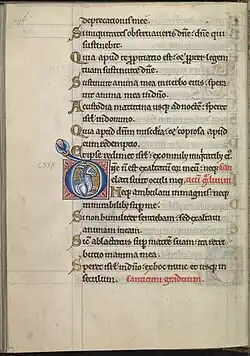 deprecationis mee.
Si iniquitates observaveris dñe: dñe quis
sustinebit.
Quia apud te ppitiatio est: & ppter legem
tuam sustinui te dñe.
Sustinuit anima mea in verbo eius: spe
ravit anima mea in dño.
A custodia matutina usq; ad noctem: speret
isrl in domino.
Quia apud dñm misedia: & copiosa apud
eum redemptio.
Et ipse redimet isrl: ex omnib; iniqtatib; ei
CXXX
Dñe ñ est exaltatũ cor meũ: neq;
elati sunt oculi mei. cãticũ graduum.
Neq; ambulavi in magnis: neq; in
mirabilib; sup me.
Si non humiliter sentiebam: sed exaltavi
animam meam.
Sic ablactatus sup matrẽ suam: ita retri
butio in anima mea.
Speret isrl in dño: ex hoc nunc et usq; in
seculum. Canticum graduum.